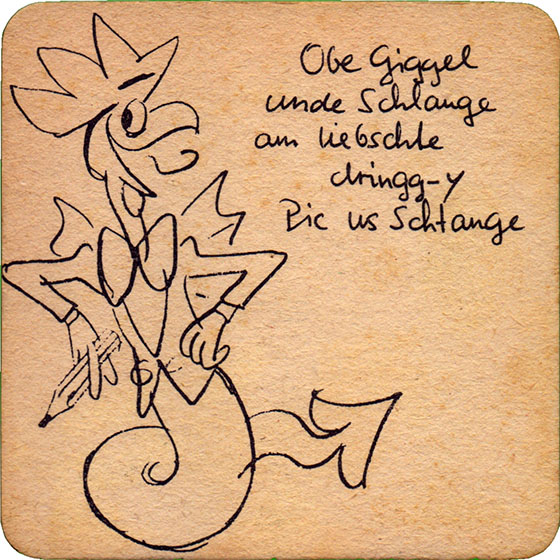 Obe Giggel
unde Schlange
am liebschte
dringg-y
Bic us Schtange